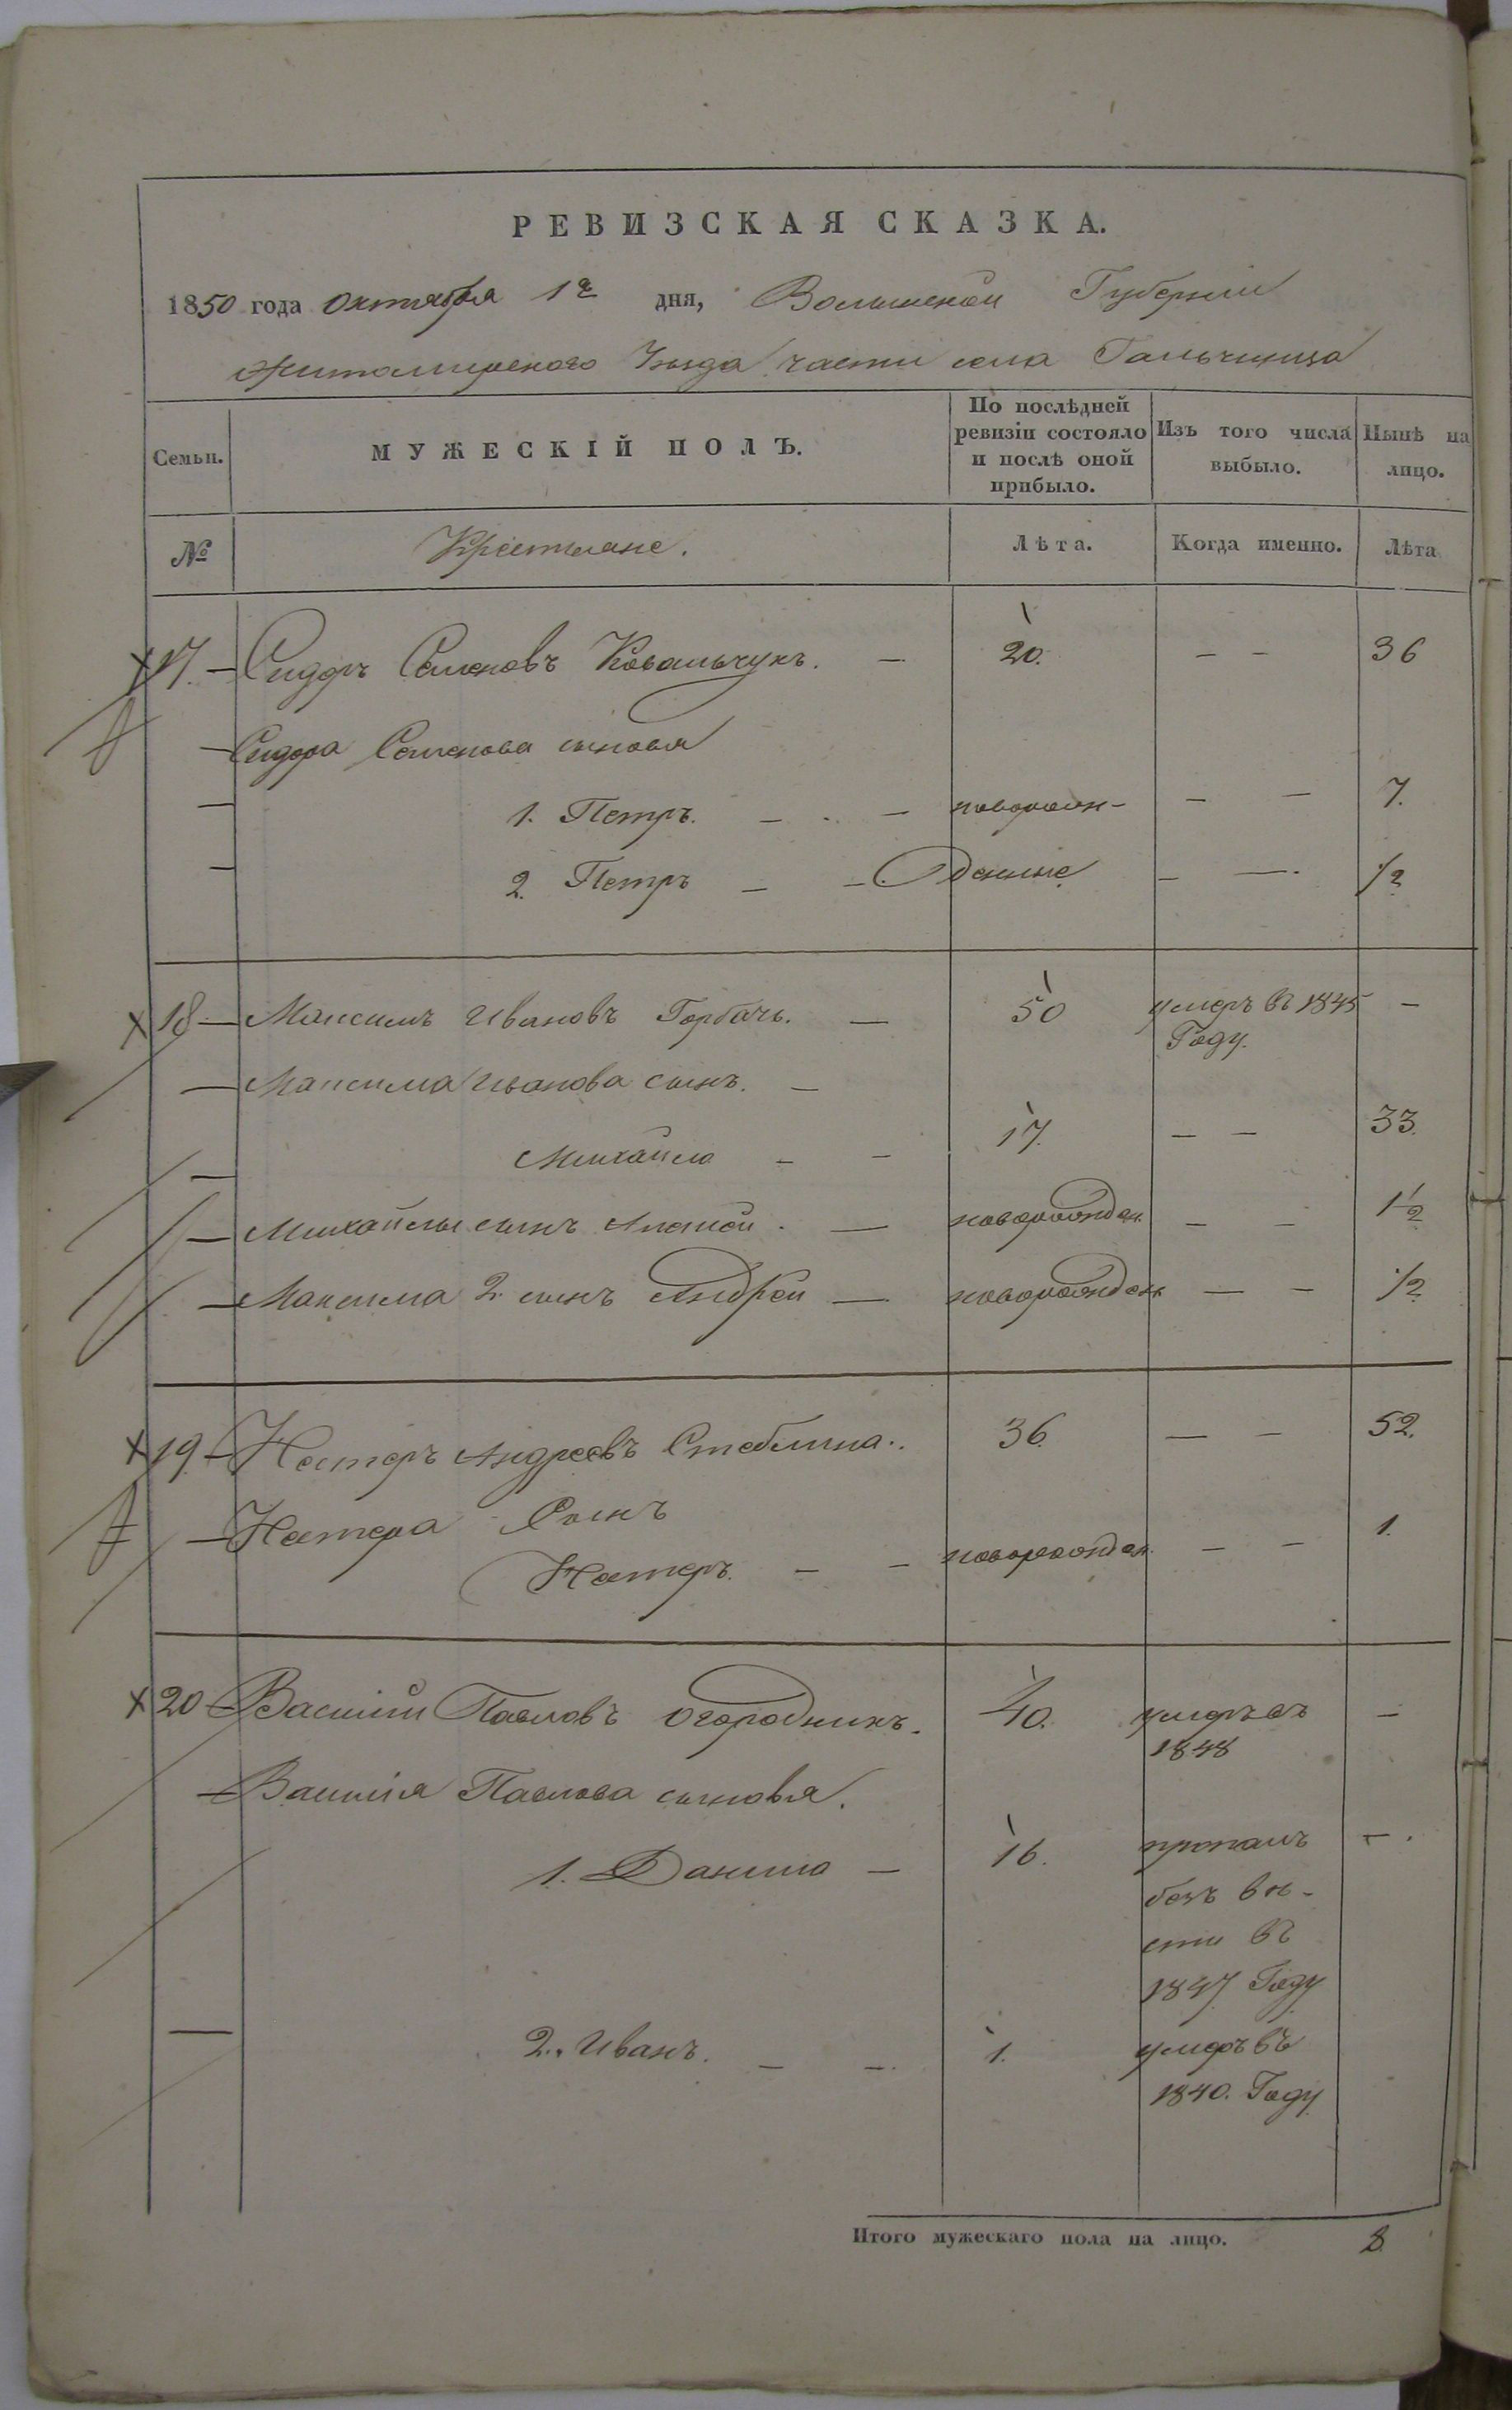 РЕВИЗСКАЯ СКАЗКА.
1850 года Октября 1го дня, Волынской Губернии
Житомирского Уѣзда части села Гальчинца
Семьи. МУЖЕСКІЙ ПОЛЪ. По послѣдней ревизіи состояло и послѣ оной прибыло. Изъ того числа выбыло. Нынѣ на лицо.
№ Крестьяне. Лѣта. Когда именно. Лѣта
17. — Сидоръ Семеновъ Ковальчукъ. — 20. — — 36
— Сидора Семенова сыновья
— 1. Петръ. — — новорож- — — 7.
— 2. Петръ — — денные — — 1/2
18 — Максимъ Ивановъ Горбачь. — 50 умеръ въ 1845 Году. —
— Максима Иванова сынъ. —
— Михайло — — 17. — — 33.
— Михайлы сынъ . — новорожден. — — 1 1/2
— Максима 2. сынъ Андрей — новорожден — — 1/2
19 — Нестеръ Андреевъ Стеблина. 36. — — 52.
— Нестера Сынъ
Нестеръ. — — новорожден. — — 1.
20 — Василій Павловъ Огородникъ. 40. умеръ въ 1848 —
— Василія Павлова сыновья.
1. Данило — 16. пропалъ безъ вѣ-
сти въ
1847 Году
— 2. Иванъ. — — 1. умеръ въ
1840. Году
Итого мужескаго пола на лицо. 8